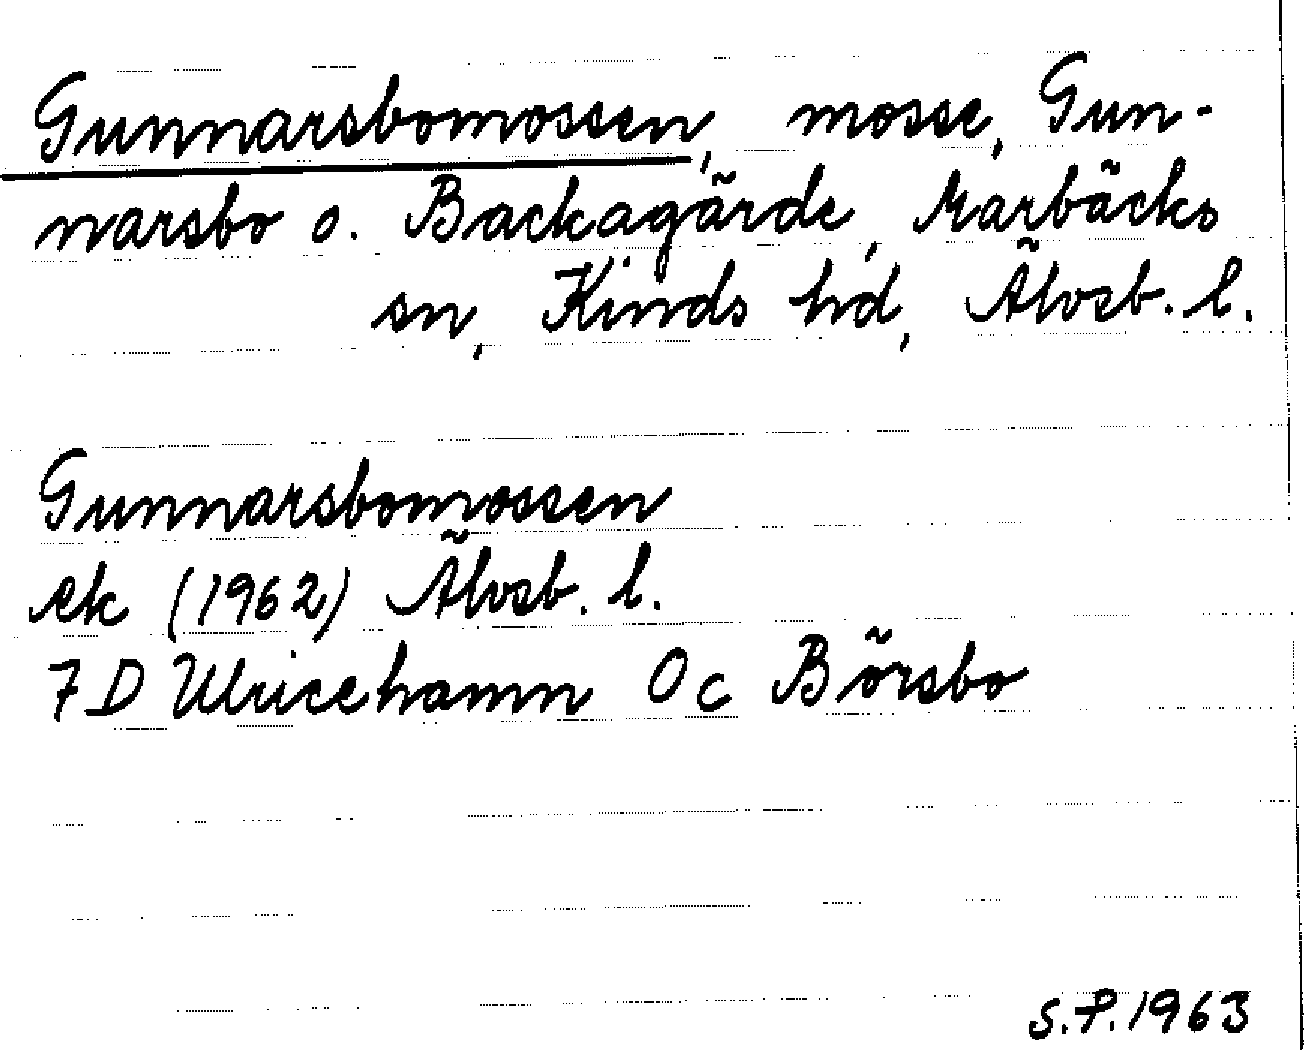 Gunnarsbomossen, mosse, Gun-
narsbo o. Backagärde, Marbäcks
sn, Kinds hd, Älvsb. l.
Gunnarsbomossen
ek (1962) Älvsb. l.
7 D Ulricehamn 0 c Börsbo
S.P. 1963